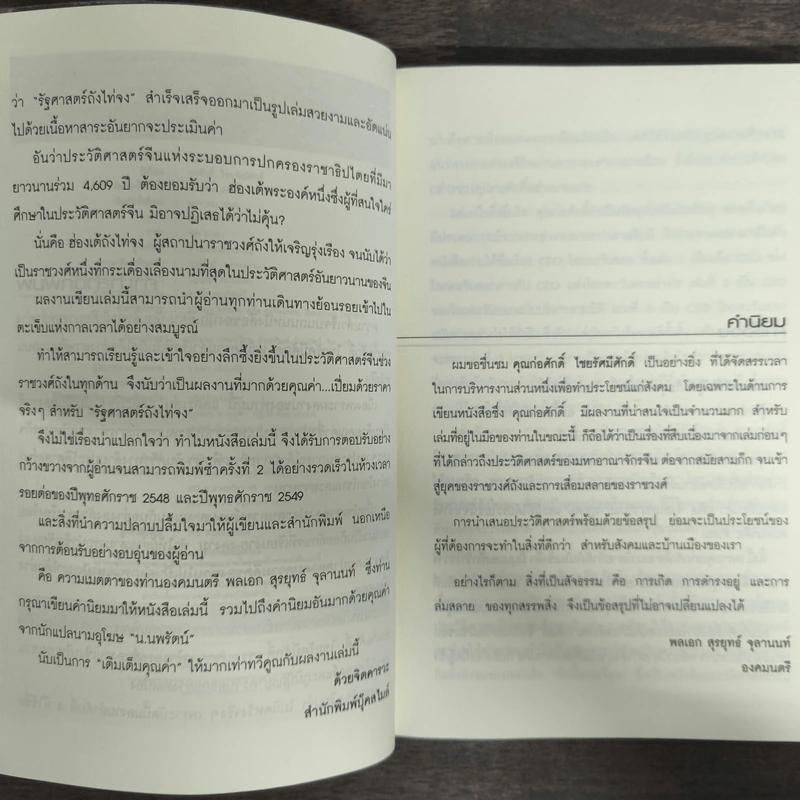 ว่า "รัฐศาสตร์ถังไท่จง" สำเร็จเสร็จออกมาเป็นรูปเล่มสวยงามและอัดแน่น
ไปด้วยเนื้อหาสาระอันยากจะประเมินค่า
อันว่าประวัติศาสตร์จีนแห่งระบอบการปกครองราชาธิปไตยที่มีมา
ยาวนานร่วม 4,609 ปี ต้องยอมรับว่า ฮ่องเต้พระองค์หนึ่งซึ่งผู้ที่สนใจใคร่
ศึกษาในประวัติศาสตร์จีน มิอาจปฏิเสธได้ว่าไม่คุ้น?
นั่นคือ ฮ่องเต้ถังไท่จง ผู้สถาปนาราชวงศ์ถังให้เจริญรุ่งเรือง จนนับได้ว่า
เป็นราชวงศ์หนึ่งที่กระเดื่องเลื่องนามที่สุดในประวัติศาสตร์อันยาวนานของจีน
ผลงานเขียนเล่มนี้สามารถนำผู้อ่านทุกท่านเดินทางย้อนรอยเข้าไปใน
ตะเข็บแห่งกาลเวลาได้อย่างสมบูรณ์
ทำให้สามารถเรียนรู้และเข้าใจอย่างลึกซึ้งยิ่งขึ้นในประวัติศาสตร์จีนช่วง
ราชวงศ์ถังในทุกด้าน จึงนับว่าเป็นผลงานที่มากด้วยคุณค่า...เปี่ยมด้วยราคา
จริงๆ สำหรับ "รัฐศาสตร์ถังไท่จง"
จึงไม่ใช่เรื่องน่าแปลกใจว่า ทำไมหนังสือเล่มนี้ จึงได้รับการตอบรับอย่าง
กว้างขวางจากผู้อ่านจนสามารถพิมพ์ซ้ำครั้งที่ 2 ได้อย่างรวดเร็วในห้วงเวลา
รอยต่อของปีพุทธศักราช 2548 และปีพุทธศักราช 2549
และสิ่งที่นำความปลาบปลื้มใจมาให้ผู้เขียนและสำนักพิมพ์ นอกเหนือ
จากการต้อนรับอย่างอบอุ่นของผู้อ่าน
คือ ความเมตตาของท่านองคมนตรี พลเอก สุรยุทธ์ จุลานนท์ ซึ่งท่าน
กรุณาเขียนคำนิยมมาให้หนังสือเล่มนี้ รวมไปถึงคำนิยมอันมากด้วยคุณค่า
จากนักแปลนามอุโฆษ "น.นพรัตน์"
นับเป็นการ "เติมเต็มคุณค่า" ให้มากเท่าทวีคูณกับผลงานเล่มนี้
ด้วยจิตคารวะ
สำนักพิมพ์บุ๊คสไมล์
คำนิยม
ผมขอชื่นชม คุณก่อศักดิ์ ไชยรัศมีศักดิ์ เป็นอย่างยิ่ง ที่ได้จัดสรรเวลา
ในการบริหารงานส่วนหนึ่งเพื่อทำประโยชน์แก่สังคม โดยเฉพาะในด้านการ
เขียนหนังสือซึ่ง คุณก่อศักดิ์ มีผลงานที่น่าสนใจเป็นจำนวนมาก สำหรับ
เล่มที่อยู่ในมือของท่านในขณะนี้ ก็ถือได้ว่าเป็นเรื่องที่สืบเนื่องมาจากเล่มก่อนๆ
ที่ได้กล่าวถึงประวัติศาสตร์ของมหาอาณาจักรจีน ต่อจากสมัยสามก๊ก จนเข้า
สู่ยุคของราชวงศ์ถังและการเสื่อมสลายของราชวงศ์
การนำเสนอประวัติศาสตร์พร้อมด้วยข้อสรุป ย่อมจะเป็นประโยชน์ของ
ผู้ที่ต้องการจะทำในสิ่งที่ดีกว่า สำหรับสังคมและบ้านเมืองของเรา
อย่างไรก็ตาม สิ่งที่เป็นสัจธรรม คือ การเกิด การดำรงอยู่ และการ
ล่มสลาย ของทุกสรรพสิ่ง จึงเป็นข้อสรุปที่ไม่อาจเปลี่ยนแปลงได้
พลเอก สุรยุทธ์ จุลานนท์
องคมนตรี